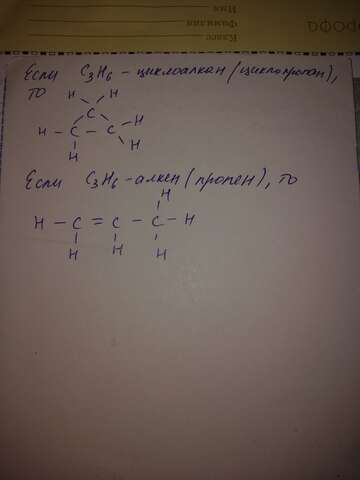 Класс
Фамилия
Имя
Если C3H6 - циклоалкан (циклопропан),
то
H H
C
H - C - C - H
H H
Если C3H6 - алкен (пропен), то
H
H - C = C - C - H
H H H